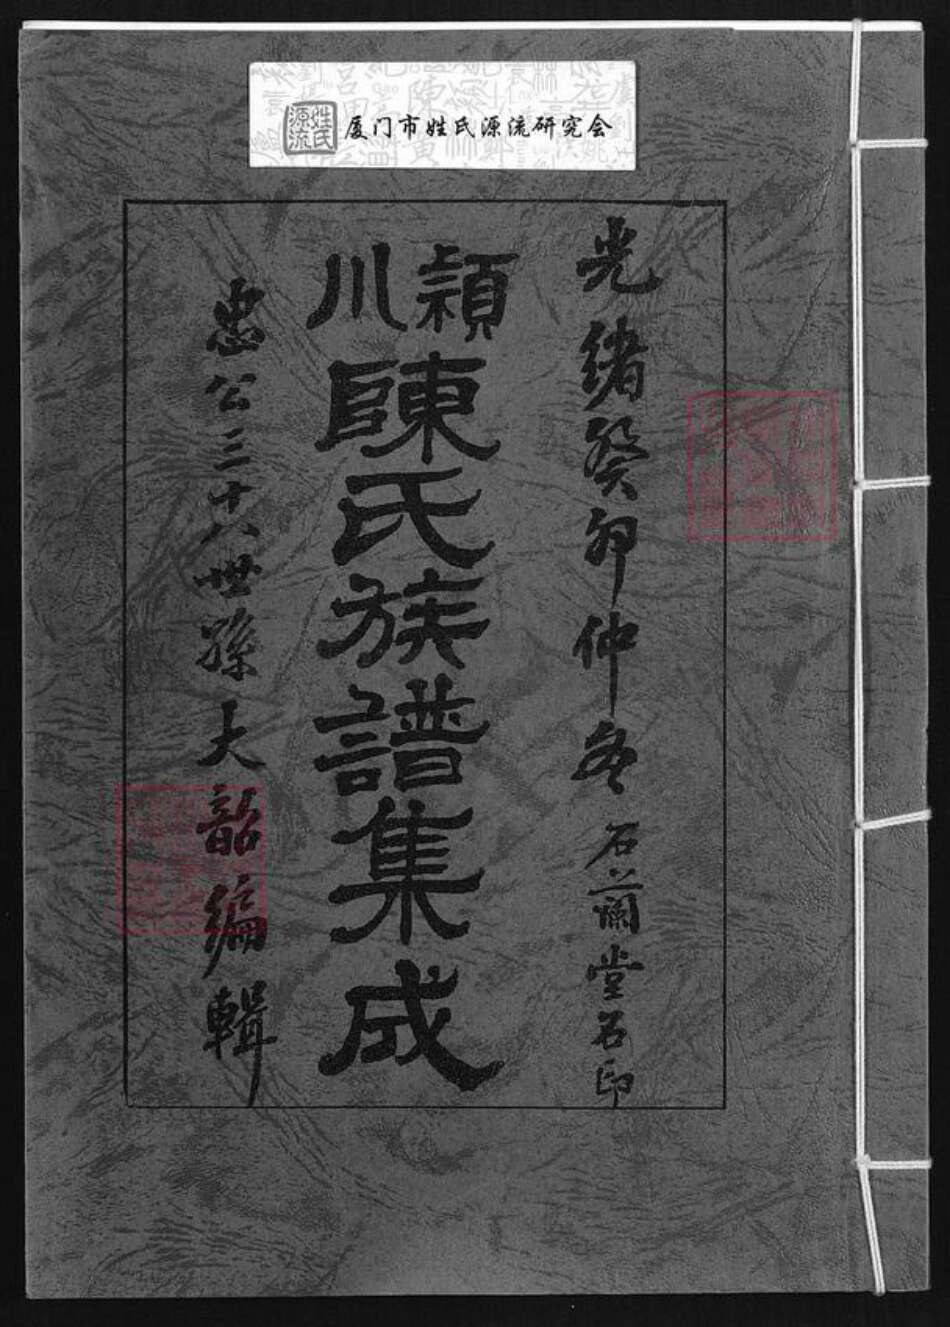 姓氏源流
厦门市姓氏源流研究会
光緒癸卯仲冬 石蘭堂石印
潁川
陳氏族譜集成
忠公三十八世孫大韶編輯